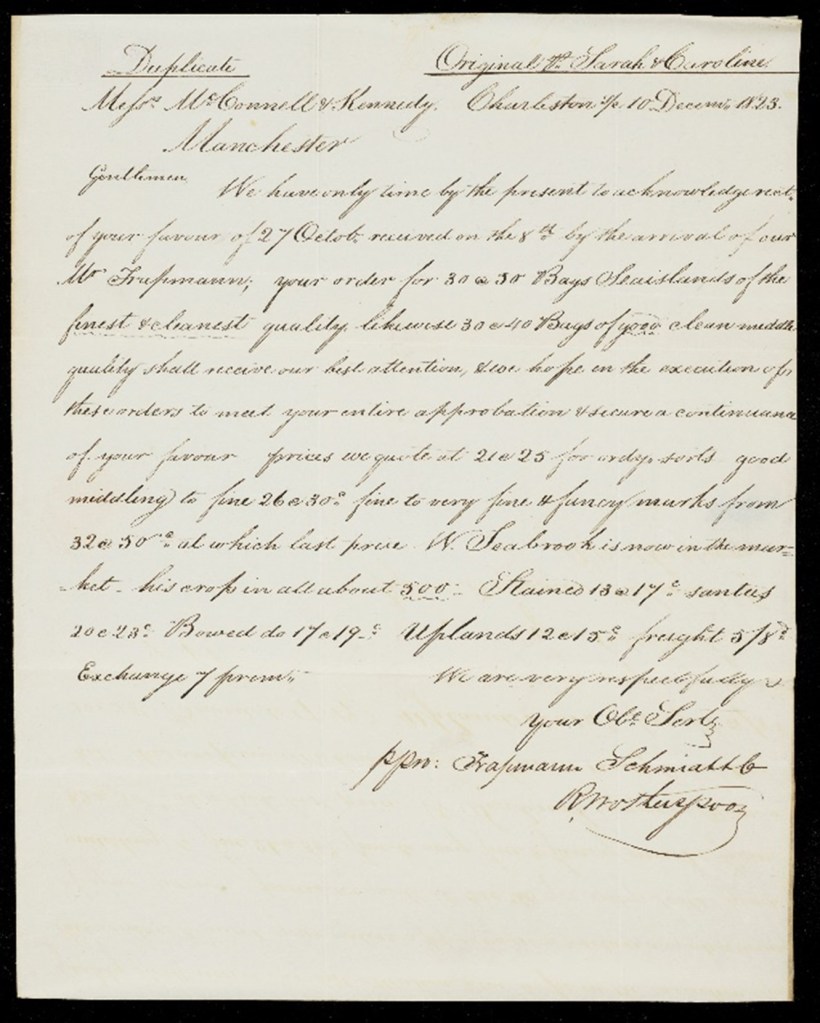 Duplicate Original pr. Sarah & Caroline
Messrs. McConnell & Kennedy. Charleston S/C 10 Decemr. 1823.
Manchester
Gentlemen
We have only time by the present to acknowledge rect.
of your favour of 27 Octob. received on the 8th by the arrival of our
Mr Trapmann; your order for 30 a 50 Bags Seaislands of the
finest & cleanest quality likewise 30 a 40 Bags of good clean middle
quality shall receive our best attention, & we hope in the execution of
these orders to meet your entire approbation & secure a continuance
of your favour prices we quote at 21 a 25 for ordy. sorts good
middling to fine 26 a 30c fine to very fine & fancy marks from
32 a 50c at which last price W. Seabrook is now in the mar-
ket - his crop in all about 500 - Stained 13 a 17c santees
20 a 23c Bowed do 17 a 19c Uplands 12 a 15c freight 5/8d
Exchange 7 prem.
We are very respectfully
your Obt. Servts
ppn: Trapmann Schmidt & Co